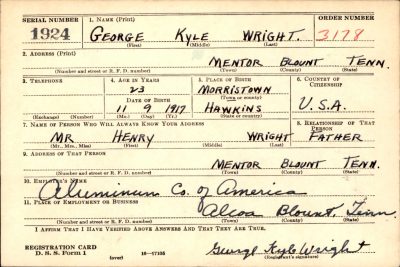 SERIAL NUMBER 1. NAME (Print) ORDER NUMBER
1924 GEORGE KYLE WRIGHT. 3178
(First) (Middle) (Last)
2. ADDRESS (Print)
MENTOR BLOUNT TENN.
(Number and street or R. F. D. number) (Town) (County) (State)
3. TELEPHONE 4. AGE IN YEARS 5. PLACE OF BIRTH 6. COUNTRY OF CITIZENSHIP
23 MORRISTOWN
DATE OF BIRTH (Town or county)
11 9 1917 HAWKINS U.S.A.
(Exchange) (Number) (Mo.) (Day) (Yr.) (State or country)
7. NAME OF PERSON WHO WILL ALWAYS KNOW YOUR ADDRESS 8. RELATIONSHIP OF THAT PERSON
MR HENRY WRIGHT FATHER
(Mr., Mrs., Miss) (First) (Middle) (Last)
9. ADDRESS OF THAT PERSON
MENTOR BLOUNT TENN.
(Number and street or R. F. D. number) (Town) (County) (State)
10. EMPLOYER'S NAME
Aluminum Co. of America
11. PLACE OF EMPLOYMENT OR BUSINESS
Alcoa Blount, Tenn
(Number and street or R. F. D. number) (Town) (County) (State)
I AFFIRM THAT I HAVE VERIFIED ABOVE ANSWERS AND THAT THEY ARE TRUE.
REGISTRATION CARD
D. S. S. Form 1 (over) 16—17105 George Kyle Wright
(Registrant's signature)